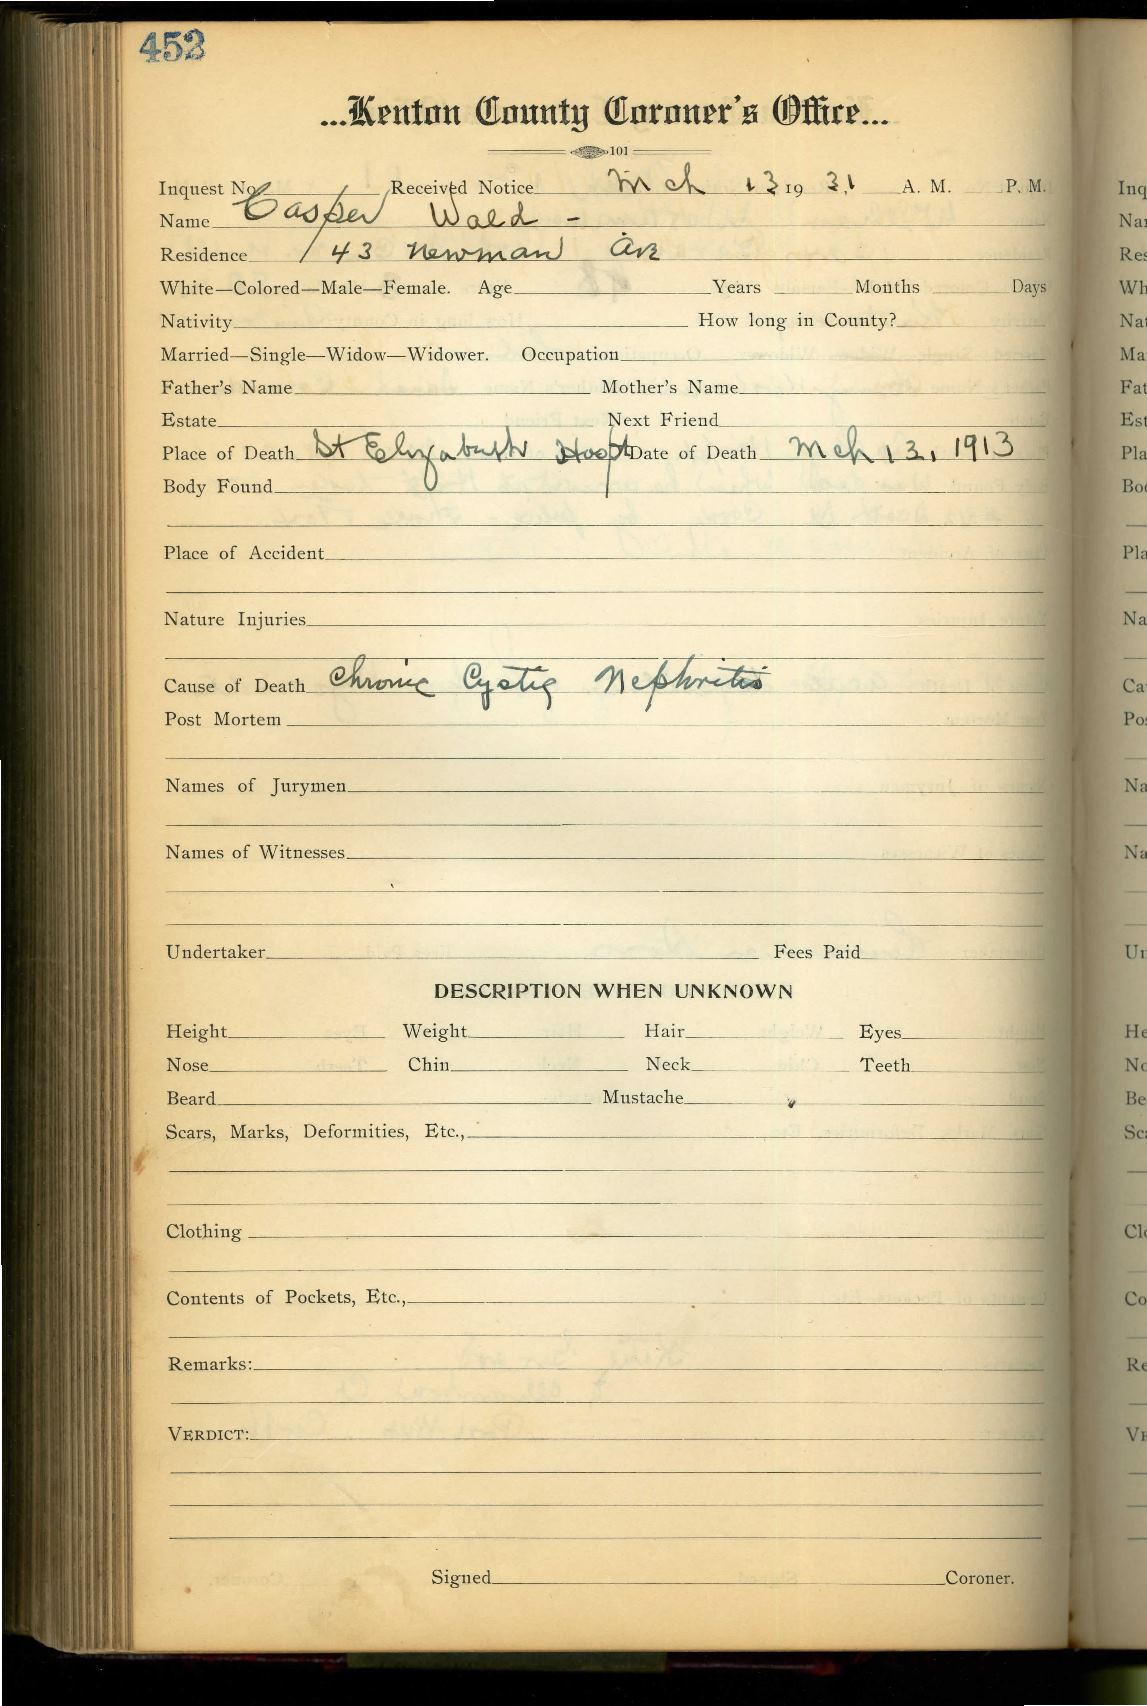 452
...Kenton County Coroner's Office...
101
Inquest No. Received Notice Mch 13 19 31 A. M. P. M.
Name Casper Wald -
Residence 143 Newman Ave
White—Colored—Male—Female. Age Years Months Days
Nativity How long in County?
Married—Single—Widow—Widower. Occupation
Father's Name Mother's Name
Estate Next Friend
Place of Death St Elizabeth Hospt Date of Death Mch 13, 1913
Body Found
Place of Accident
Nature Injuries
Cause of Death Chronic Cystic Nephritis
Post Mortem
Names of Jurymen
Names of Witnesses
Undertaker Fees Paid
DESCRIPTION WHEN UNKNOWN
Height Weight Hair Eyes
Nose Chin Neck Teeth
Beard Mustache
Scars, Marks, Deformities, Etc.,
Clothing
Contents of Pockets, Etc.,
Remarks:
VERDICT:
Signed Coroner.